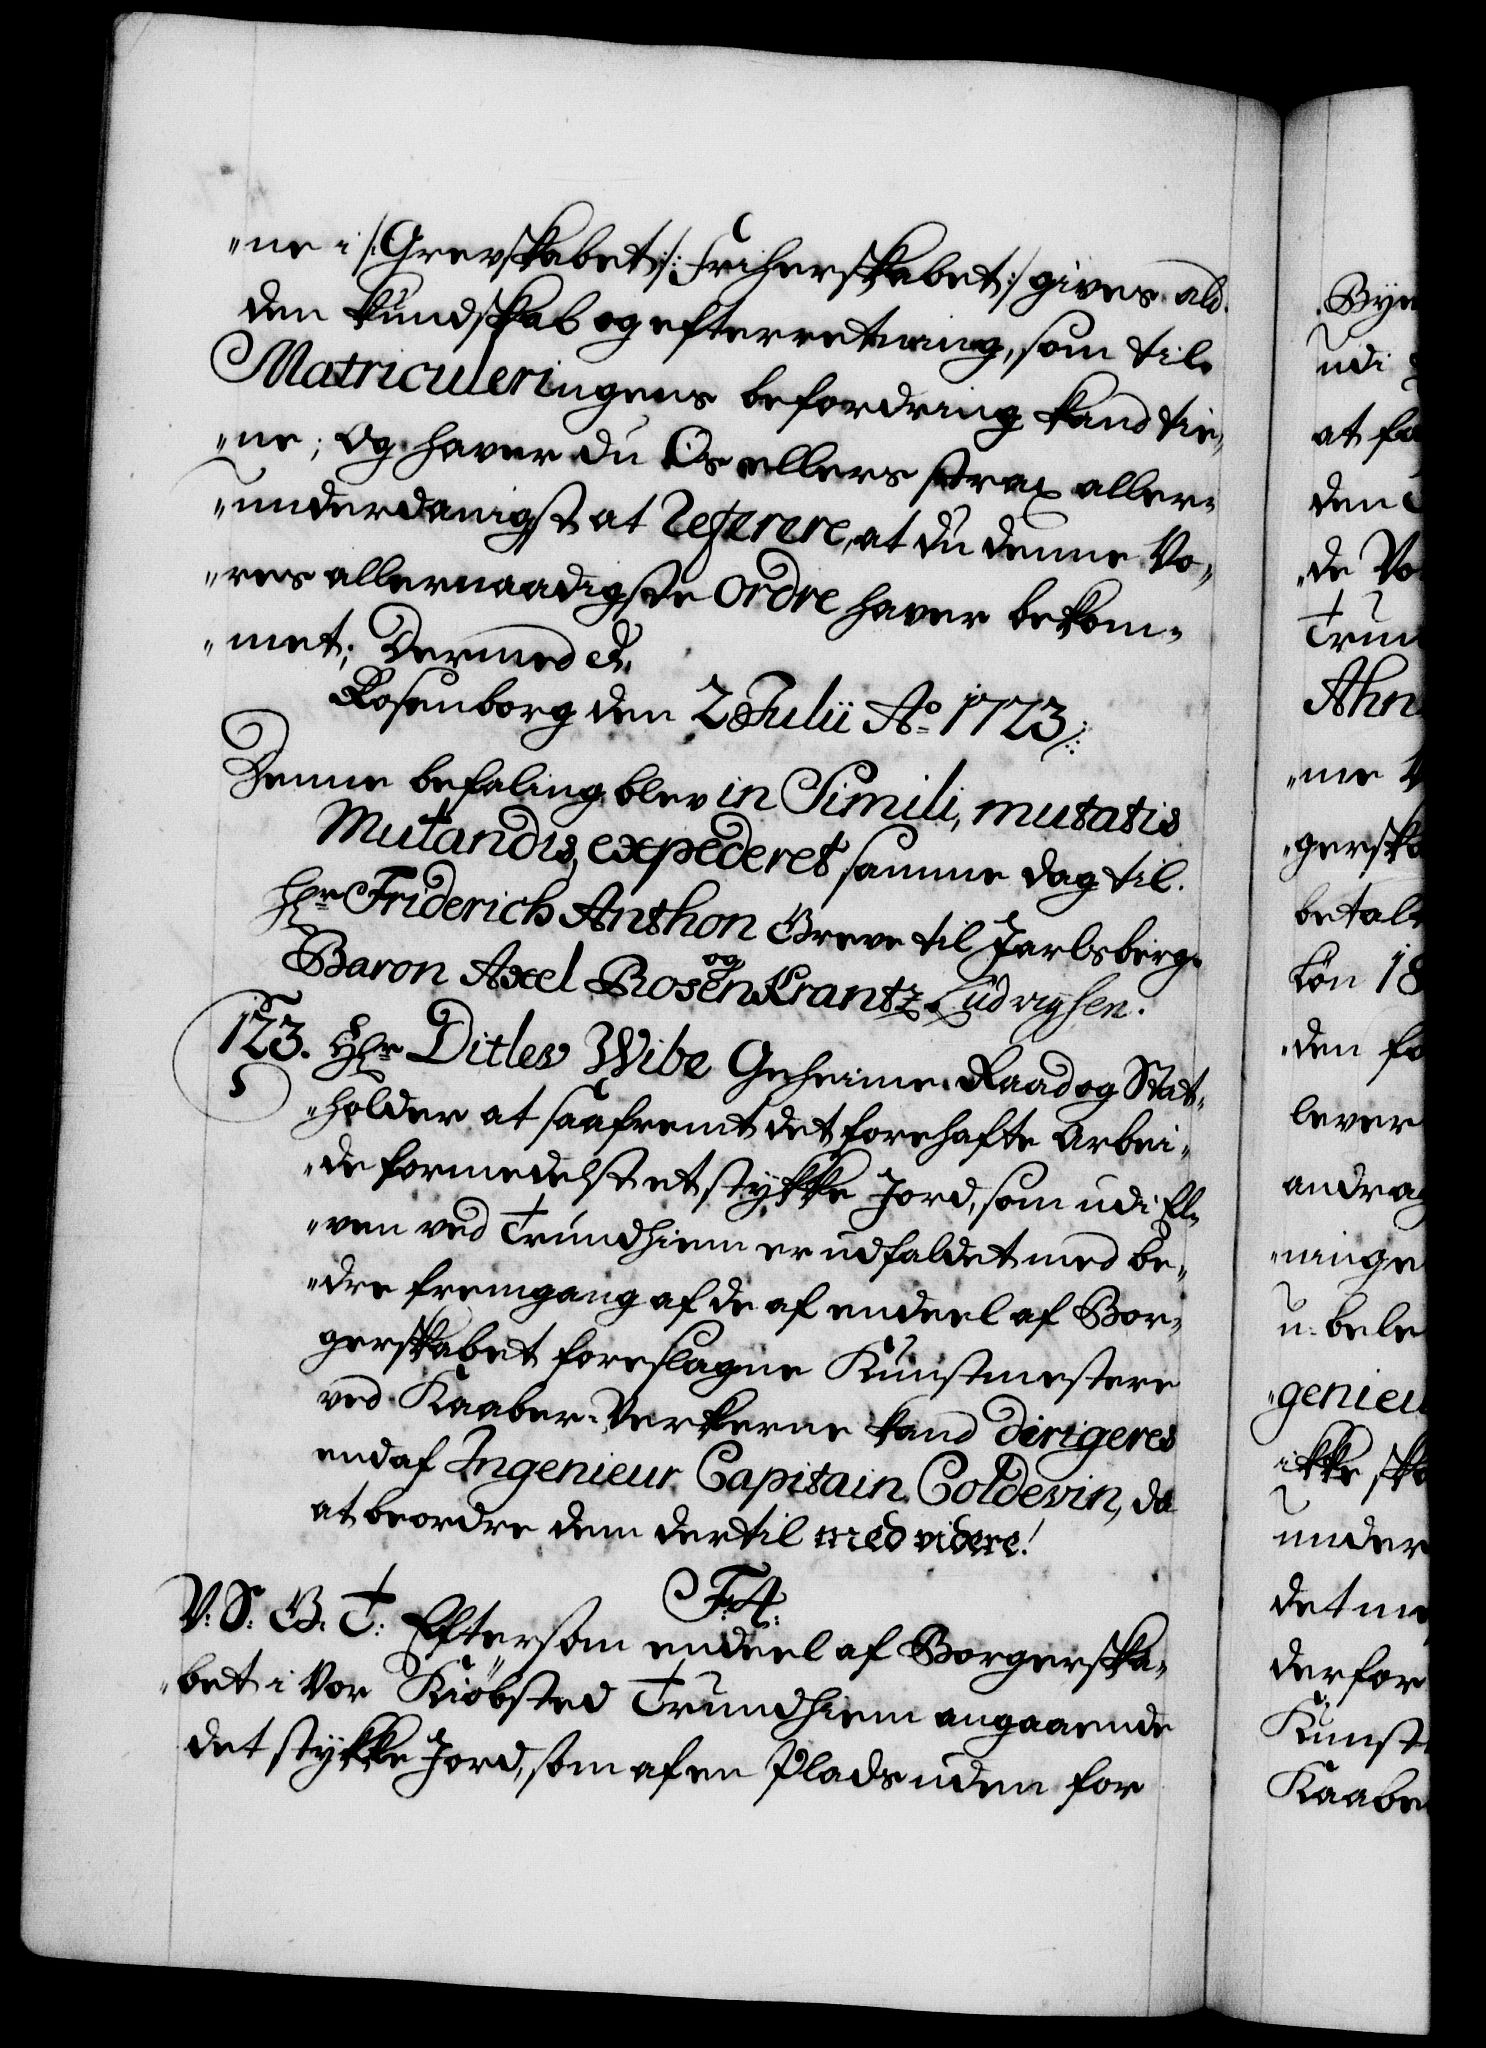 "ne i /: Grevskabet :/: Friherskabet :/ gives ald
den kundskab og efterretning, som til
Matriculeringens befordring kand tie„
„ne; Og haver du Os ellers strax aller„
„underdanigst at Referere, at du denne Vo„
„res allernaadigste Ordre haver bekom„
„met; Dermed &.
Rosenborg den 2 Julii Ao 1723 /:
Denne befaling blev in Simili, mutatis
Mutandis, expederet samme dag til
Hr Friderich Anthon Greve til Jarlsberg
og
Baron Axel Rosenkrantz Ludvigsen.
123. Hr Ditlev Wibe Geheime Raad og Stat„
5
„holder at saafremt det forehafte Arbei„
„de formedelst et stykke Jord, som udi El„
„ven ved Trundhiem er udfaldet med be„
„dre fremgang af de af endeel af Bor„
gerskabet foreslagne Kunstmestere
ved Kaaber-Verkerne kand dirigeres
end af Ingenieur Capitain Coldevin, da
at beordre dem dertil med videre!
F: 4:
V: S: G: T: Eftersom endeel af Borgerska„
„bet i Vor Kiöbsted Trundhiem angaaende
det stykke Jord, som af en Plads uden for
Bye
udi
at fo
den
„de Vo
Trun
Ahn
„ne V
„gerska
betale
kön 18
„den fo
lever
andrag
„ninge
u-bele
„genieu
ikke ska
under
det me
derfor
Kunst
Kaabe